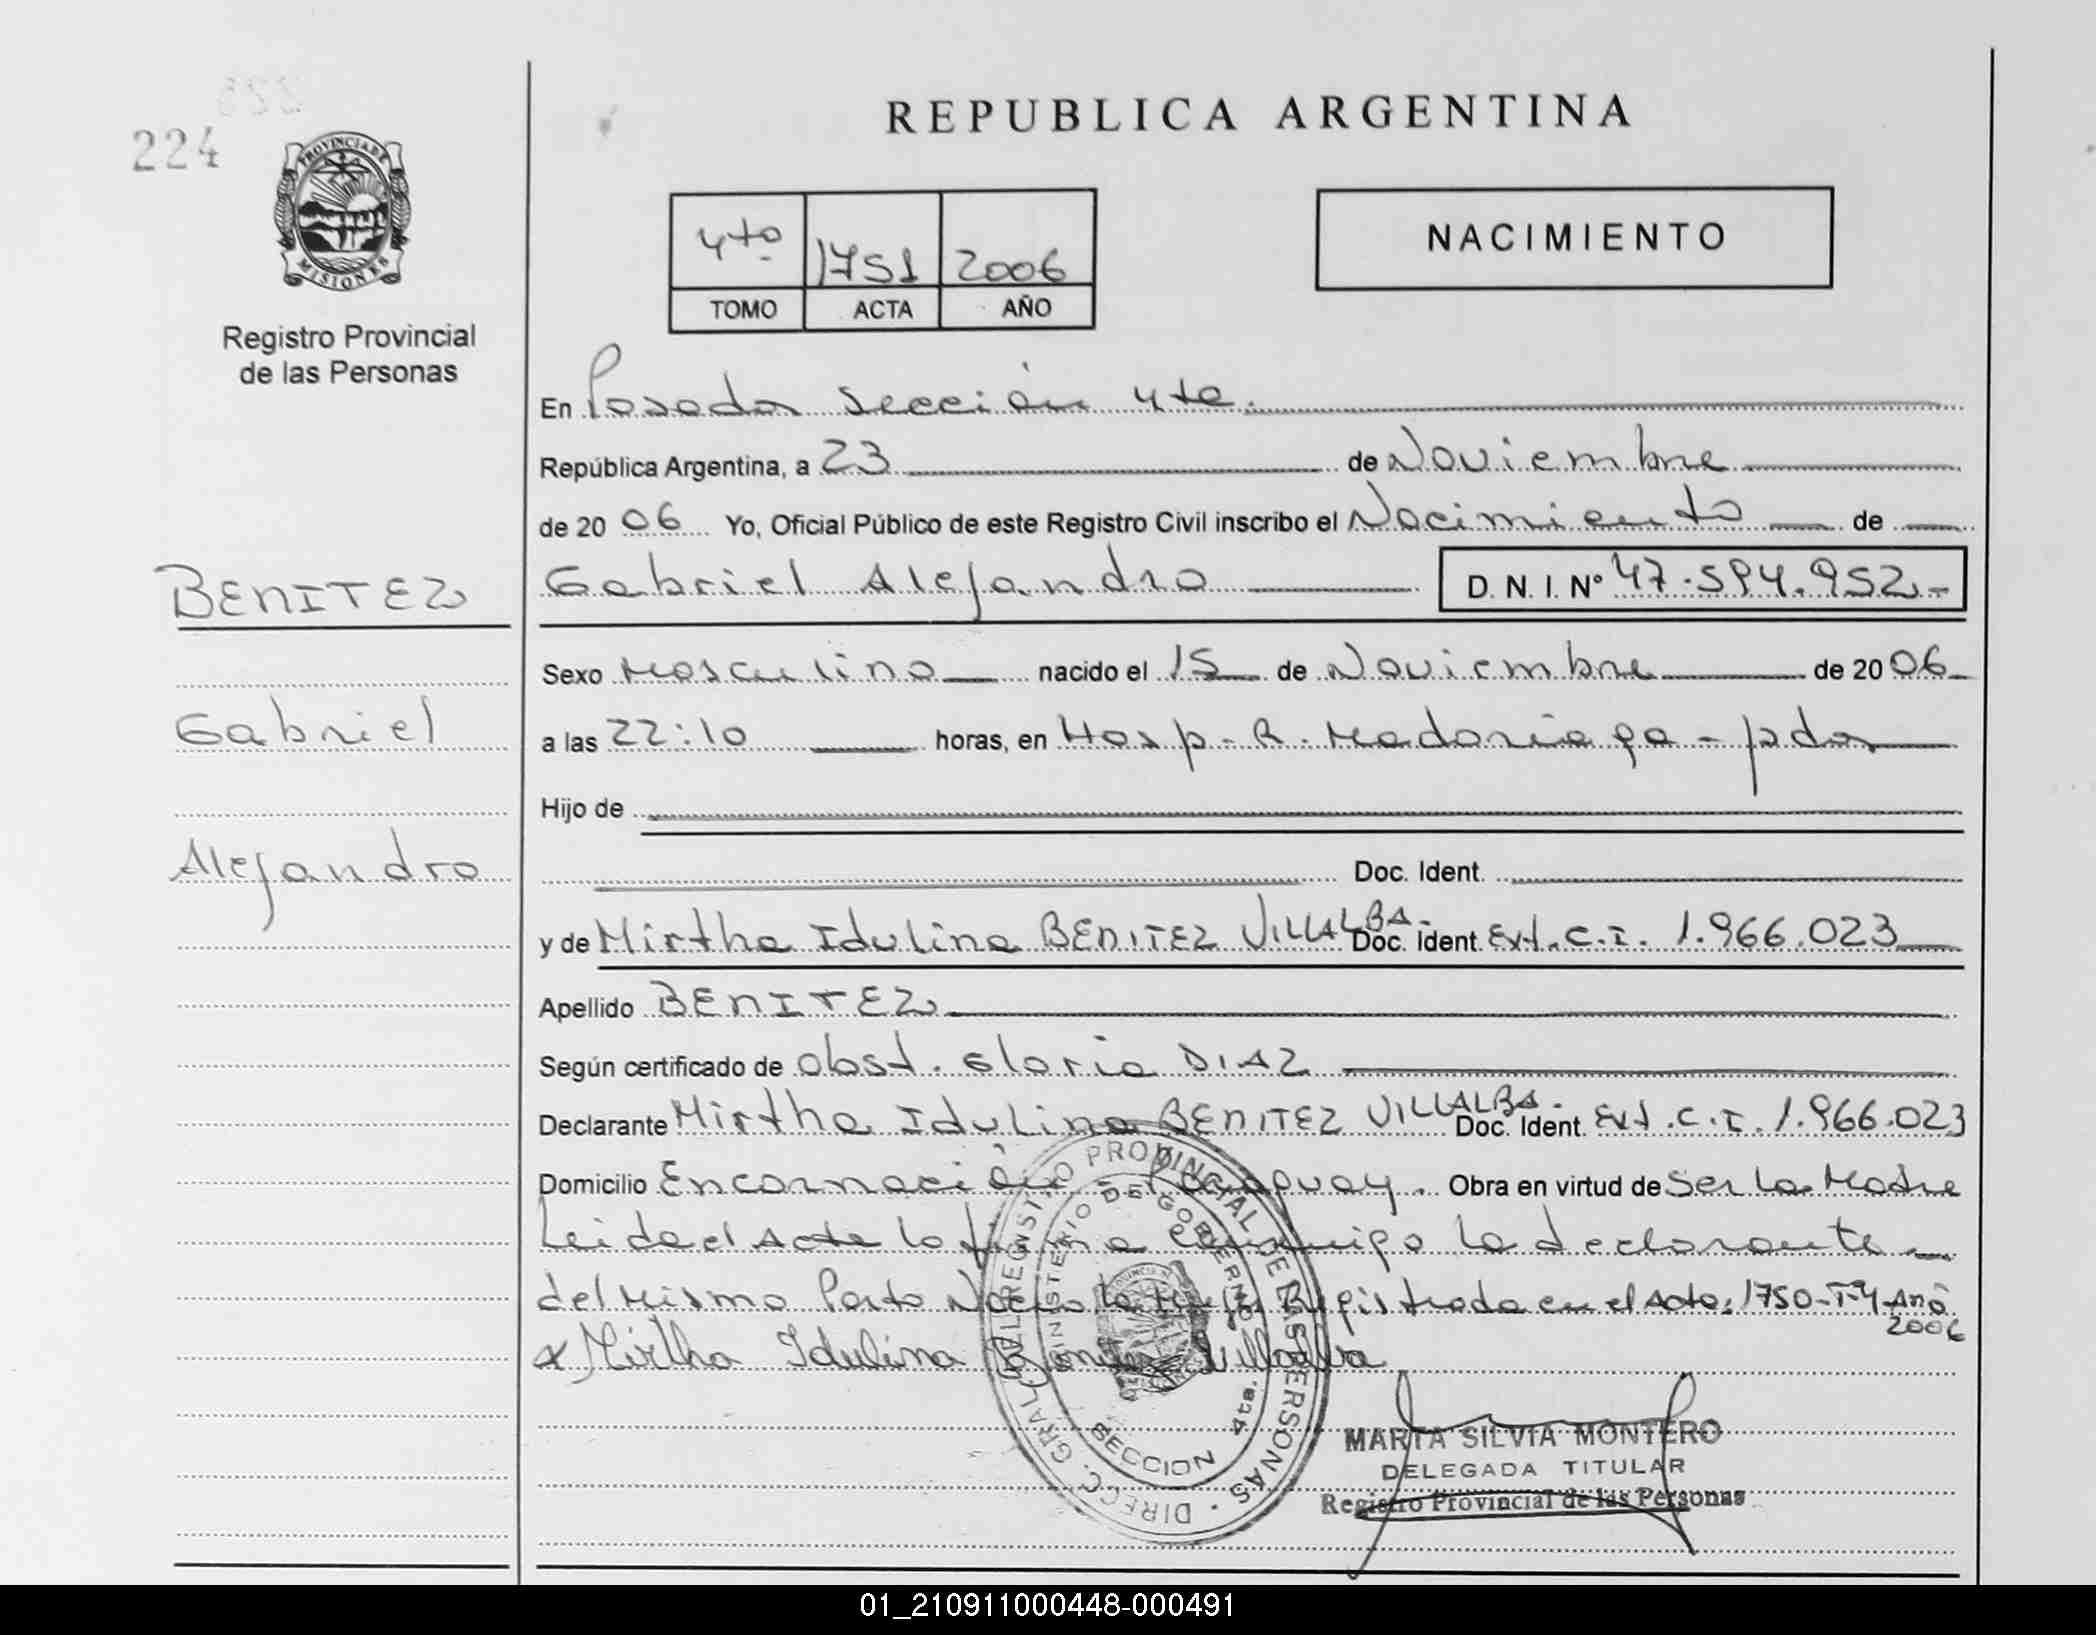 REPUBLICA ARGENTINA
224
PROVINCIA DE
MISIONES
Registro Provincial
de las Personas
4to 1751 2006
TOMO ACTA AÑO
NACIMIENTO
En Posadas Sección 4ta.
República Argentina, a 23 de Noviembre
de 20 06 Yo, Oficial Público de este Registro Civil inscribo el Nacimiento de
BENITEZ
Gabriel Alejandro D. N. I. Nº 47.594.952.-
Sexo Masculino nacido el 15 de Noviembre de 20 06
Gabriel
a las 22:10 horas, en Hosp. R. Madariaga - pdas
Hijo de
Alejandro
Doc. Ident.
y de Mirtha Idulina BENITEZ VILLALBA. Doc. Ident. Ext. C.I. 1.966.023
Apellido BENITEZ
Según certificado de Obst. Gloria DIAZ
Declarante Mirtha Idulina BENITEZ VILLALBA. Doc. Ident. Ext. C.I. 1.966.023
Domicilio Encarnación Paraguay. Obra en virtud de Ser La Madre
Leida el Acta la firma conmigo la declarante
del mismo Parto Nació la Registrada en el Acta: 1750-Tº4-Año
2006
x Mirtha Idulina Benitez Villalba
DIRECC. GRAL. REGISTRO PROVINCIAL DE LAS PERSONAS
MINISTERIO DE GOBIERNO
SECCION 4ta.
MARTA SILVIA MONTERO
DELEGADA TITULAR
Registro Provincial de las Personas
01_210911000448-000491